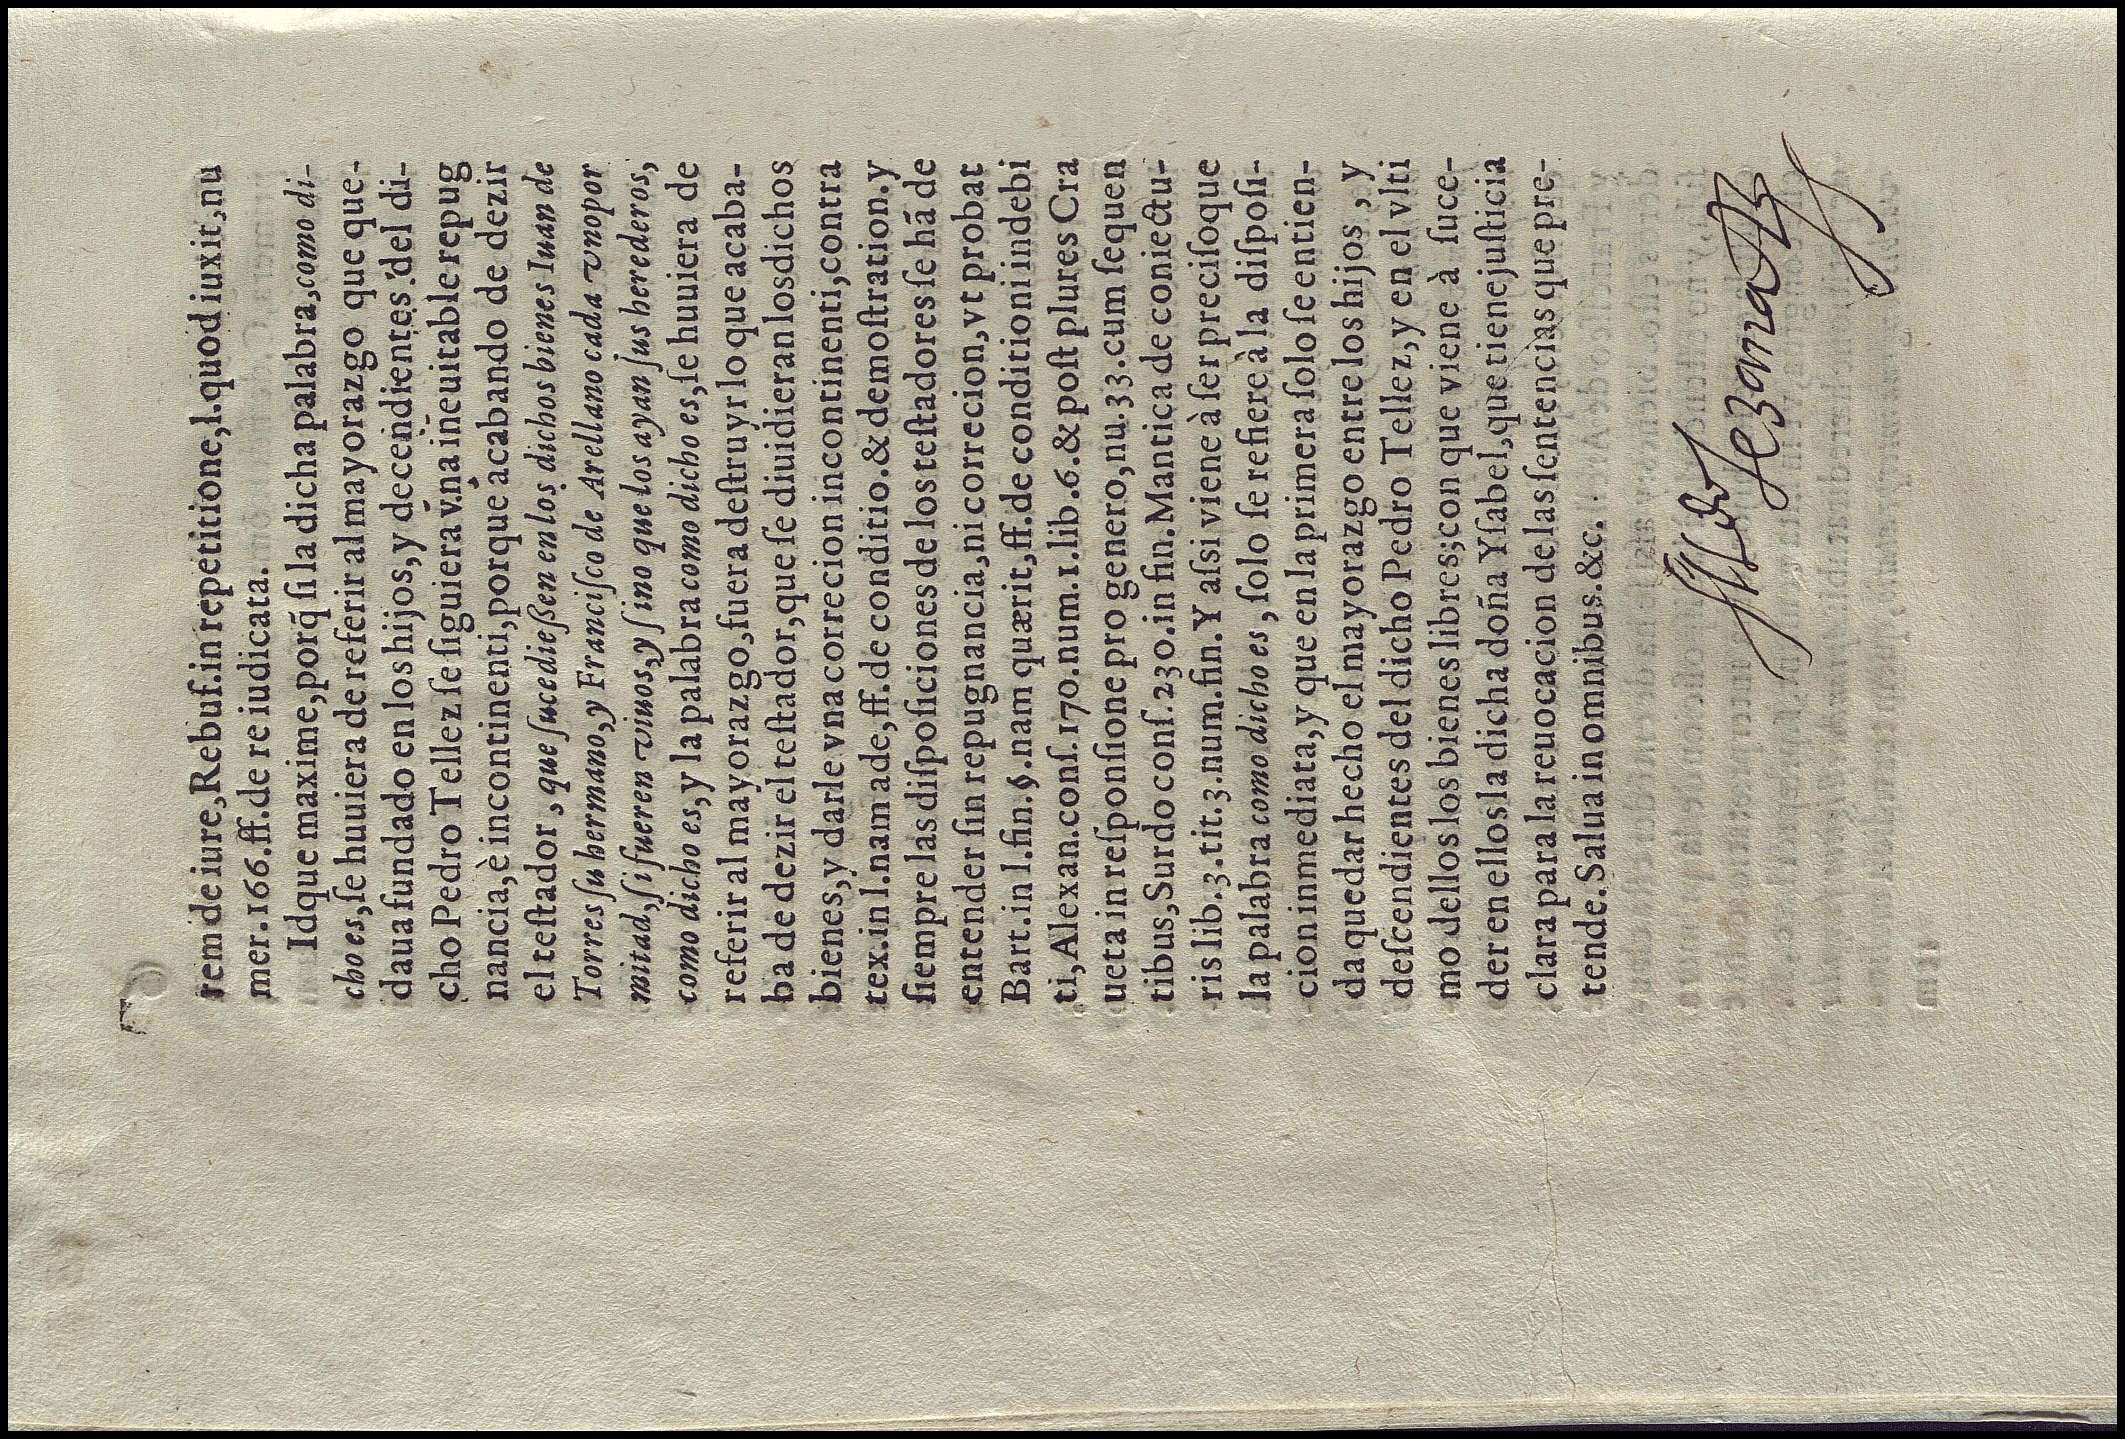 rem de iure, Rebuf. in repetitione, l. quod iuxit, nu
mer. 166. ff. de re iudicata.
Idque maxime, porq̃ ſi la dicha palabra, como di-
cho es, ſe huuiera de referir al mayorazgo que que-
daua fundado en los hijos, y decendientes del di-
cho Pedro Tellez ſe ſiguiera vna ineuitable repug
nancia, è incontinenti, porque acabando de dezir
el teſtador, que ſucedieſſen en los dichos bienes Iuan de
Torres ſu hermano, y Franciſco de Arellano cada vno por
mitad, ſi fueren viuos, y ſino que los ayan ſus herederos,
como dicho es, y la palabra como dicho es, ſe huuiera de
referir al mayorazgo, fuera deſtruyr lo que acaba-
ba de dezir el teſtador, que ſe diuidieran los dichos
bienes, y darle vna correcion incontinenti, contra
tex. in l. nam ade, ff. de conditio. & demoſtration. y
ſiempre las diſpoſiciones de los teſtadores ſe hã de
entender ſin repugnancia, ni correcion, vt probat
Bart. in l. fin. §. nam quærit, ff. de conditioni indebi
ti, Alexan. conſ. 170. num. 1. lib. 6. & poſt plures Cra
ueta in reſponſione pro genero, nu. 33. cum ſequen
tibus, Surdo conſ. 230. in fin. Mantica de coniectu-
ris lib. 3. tit. 3. num. fin. Y aſsi viene à ſer preciſo que
la palabra como dicho es, ſolo ſe refiere à la diſpoſi-
cion inmediata, y que en la primera ſolo ſe entien-
da quedar hecho el mayorazgo entre los hijos, y
deſcendientes del dicho Pedro Tellez, y en el vlti
mo dellos los bienes libres; con que viene à ſuce-
der en ellos la dicha doña Yſabel, que tiene juſticia
clara para la reuocacion de las ſentencias que pre-
tende. Salua in omnibus. &c.